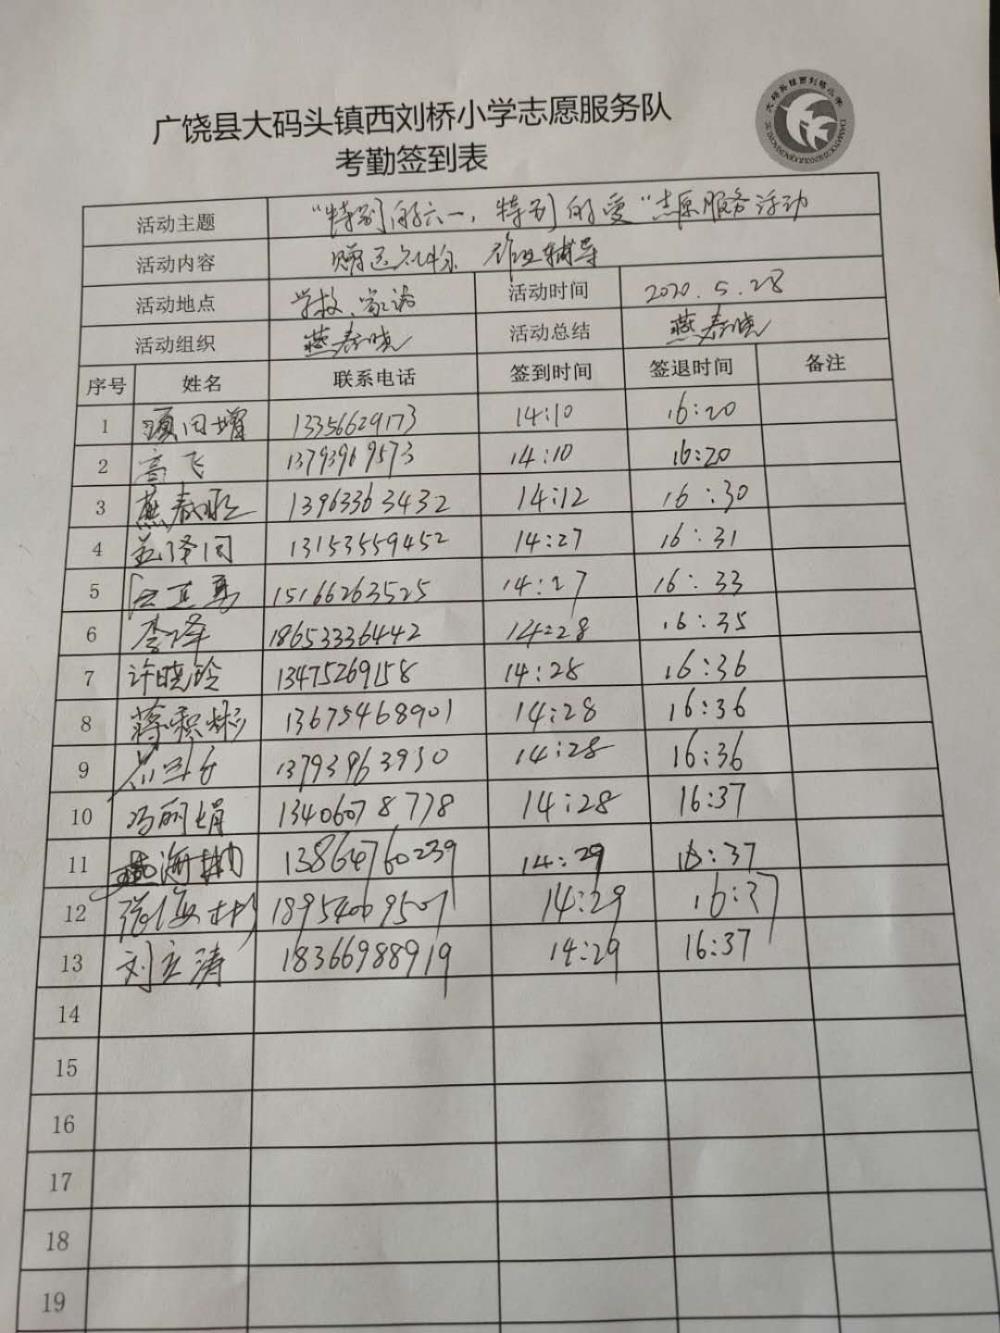 广饶县大码头镇西刘桥小学志愿服务队
考勤签到表
活动主题 "特别的六一，特别的爱"志愿服务活动
活动内容 赠送礼物 作业辅导
活动地点 学校、家访 活动时间 2020.5.28
活动组织 燕春晓 活动总结 燕春晓
序号 姓名 联系电话 签到时间 签退时间 备注
1 13356629173 14:10 16:20
2 高飞 13793969573 14:10 16:20
3 燕春 13963363432 14:12 16:30
4 13153559452 14:27 16:31
5 15166263525 14:27 16:33
6 李泽 18653336442 14:28 16:35
7 许晓玲 13475269158 14:28 16:36
8 蒋积彬 13675468901 14:28 16:36
9 13793963930 14:28 16:36
10 冯丽娟 13406078778 14:28 16:37
11 燕海 13864760239 14:29 16:37
12 张俊彬 18954069507 14:29 16:37
13 刘立涛 18366988919 14:29 16:37
14
15
16
17
18
19